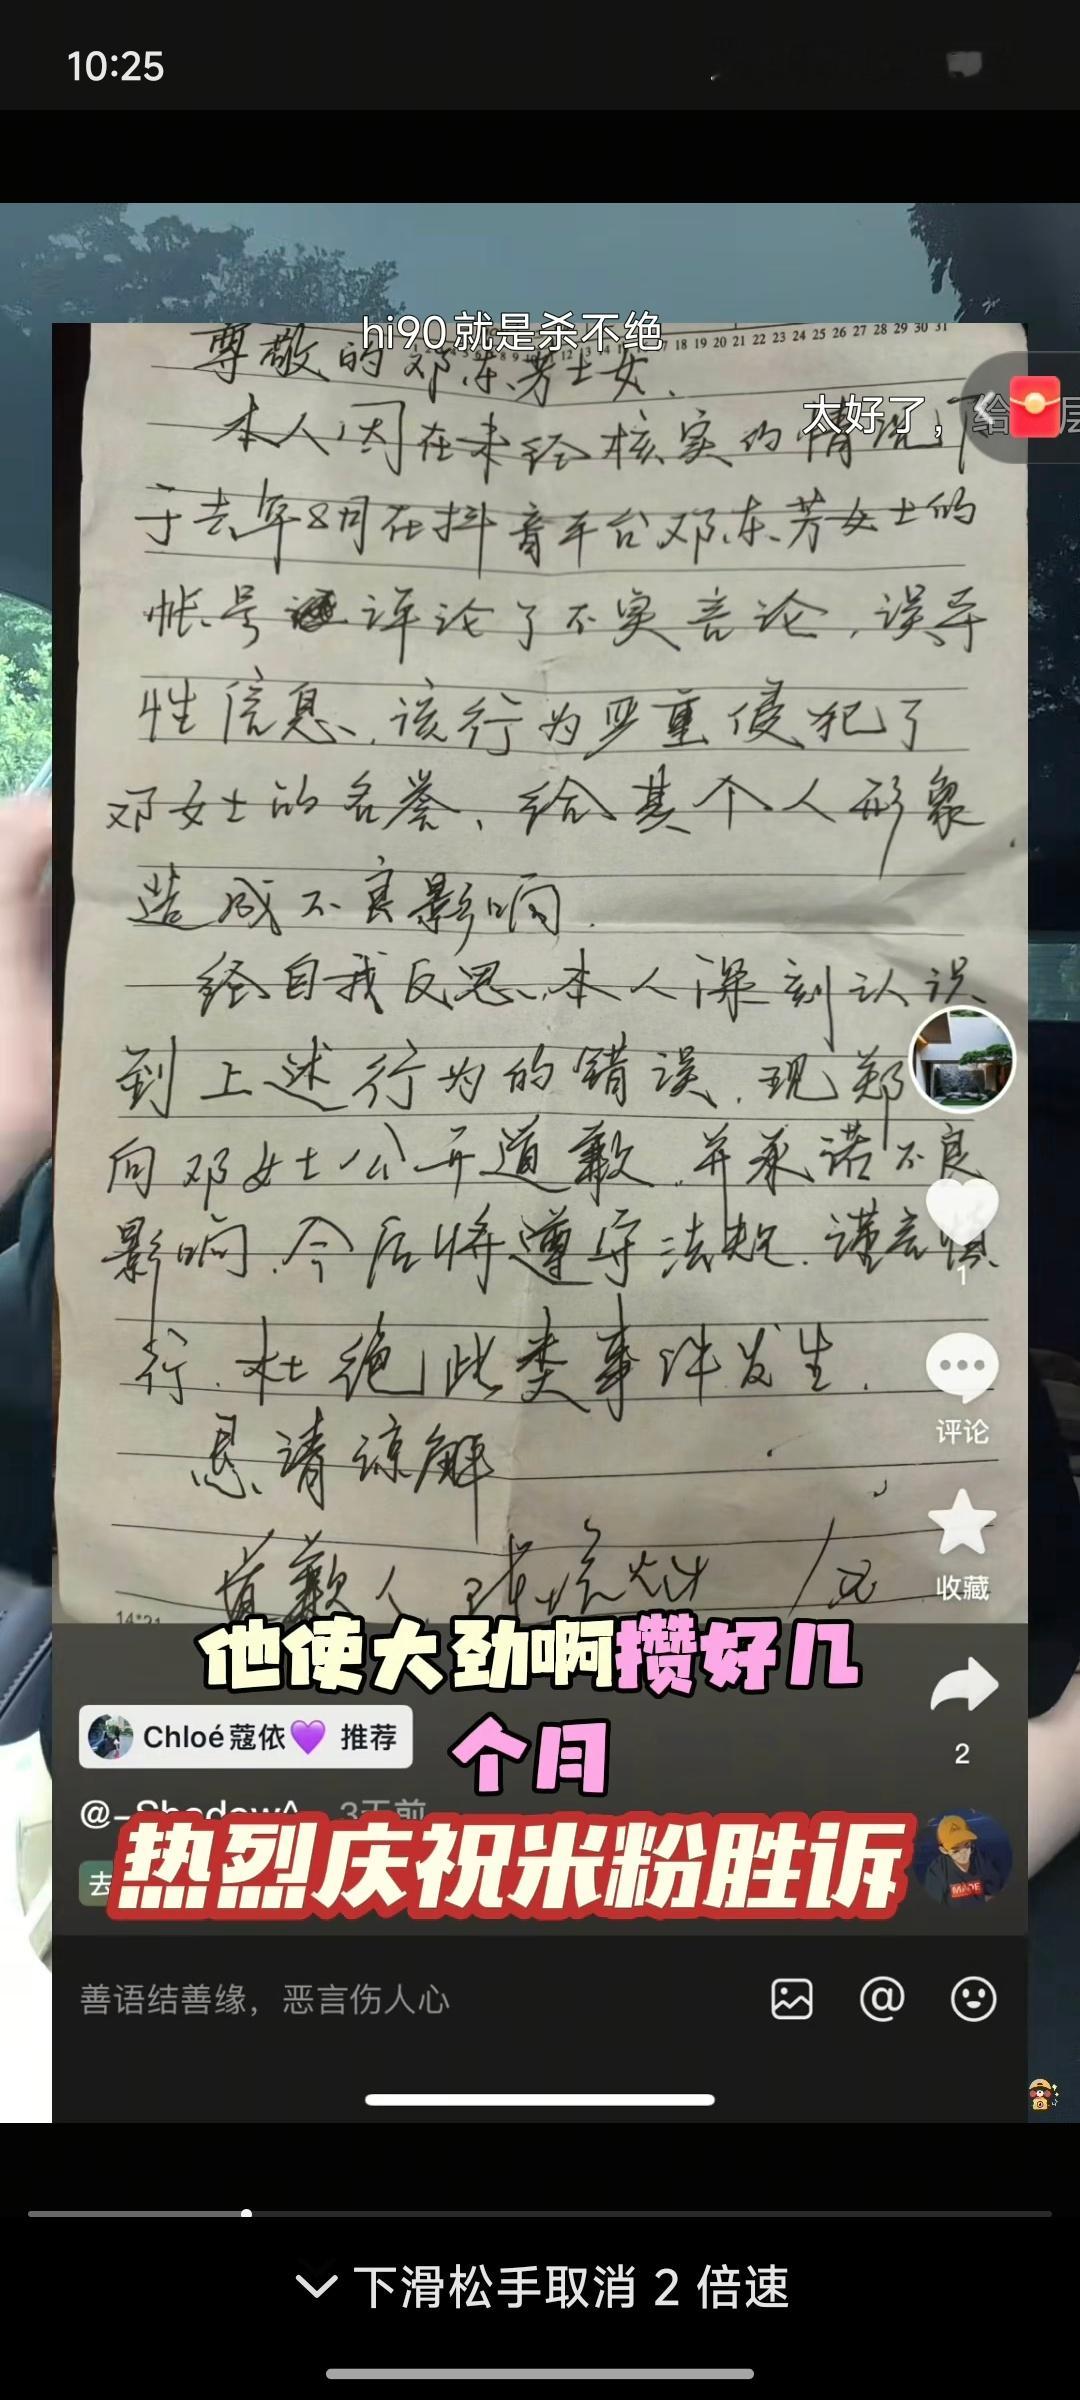 10:25
hi90就是杀不绝
18 19 20 21 22 23 24 25 26 27 28 29 30 31
尊敬的邓东芳士女.
太好了，给
层
本人因在未经核实的情况下
于去年8月在抖音平台邓东芳女士的
帐号评论了不实言论,误导
性信息、该行为严重侵犯了
邓女士的名誉、给其个人形象
造成不良影响.
经自我反思、本人深刻认识
到上述行为的错误.现郑
向邓女士公开道歉.并承诺不良
影响.今后将遵守法规.谨言慎
行.杜绝此类事件发生.
恳请谅解
道歉人
1
评论
收藏
14*21
他使大劲啊攒好几
个月
Chloé蔻依💜 推荐
2
@-ShadowA 3天前
热烈庆祝米粉胜诉
去
MADE
善语结善缘，恶言伤人心
下滑松手取消 2 倍速